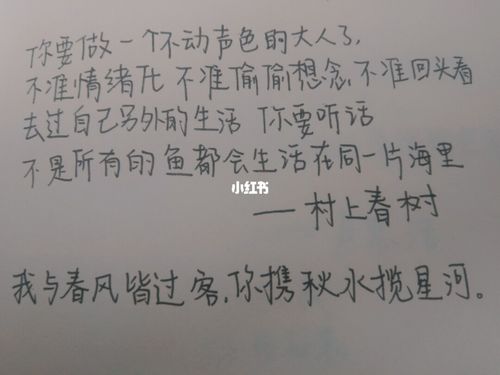 你要做一个不动声色的大人了,
不准情绪化 不准偷偷想念,不准回头看
去过自己另外的生活 你要听话
不是所有的鱼都会生活在同一片海里
小红书
——村上春树
我与春风皆过客,你携秋水揽星河。